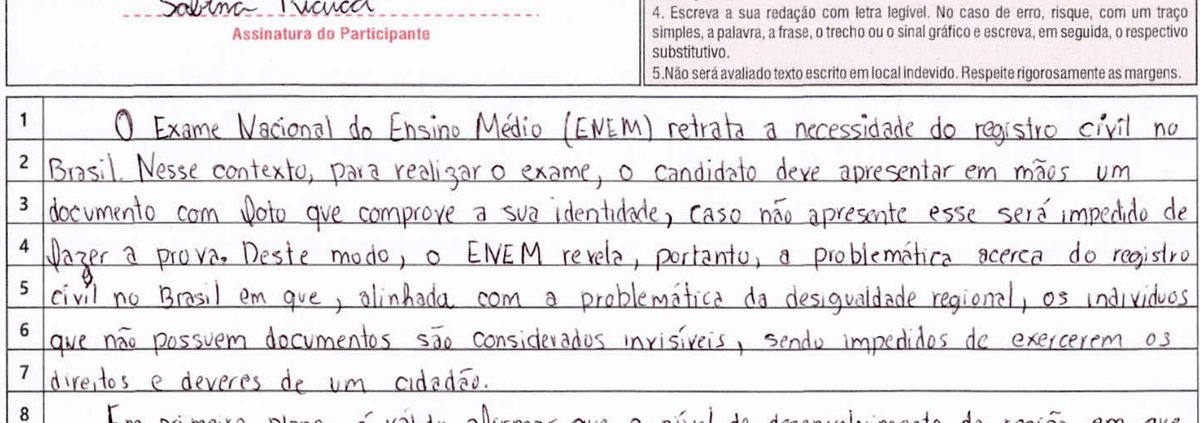 Sabina
Assinatura do Participante
4. Escreva a sua redação com letra legível. No caso de erro, risque, com um traço
simples, a palavra, a frase, o trecho ou o sinal gráfico e escreva, em seguida, o respectivo
substitutivo.
5.Não será avaliado texto escrito em local indevido. Respeite rigorosamente as margens.
1 O Exame Nacional do Ensino Médio (ENEM) retrata a necessidade do registro civil no
2 Brasil. Nesse contexto, para realizar o exame, o candidato deve apresentar em mãos um
3 documento com foto que comprove a sua identidade, caso não apresente esse será impedido de
4 fazer a prova. Deste modo, o ENEM revela, portanto, a problemática acerca do registro
5 civil no Brasil em que, alinhada com a problemática da desigualdade regional, os indivíduos
6 que não possuem documentos são considerados invisíveis, sendo impedidos de exercerem os
7 direitos e deveres de um cidadão.
8 Em primeiro plano, é válido afirmar que o nível de desenvolvimento da região em que